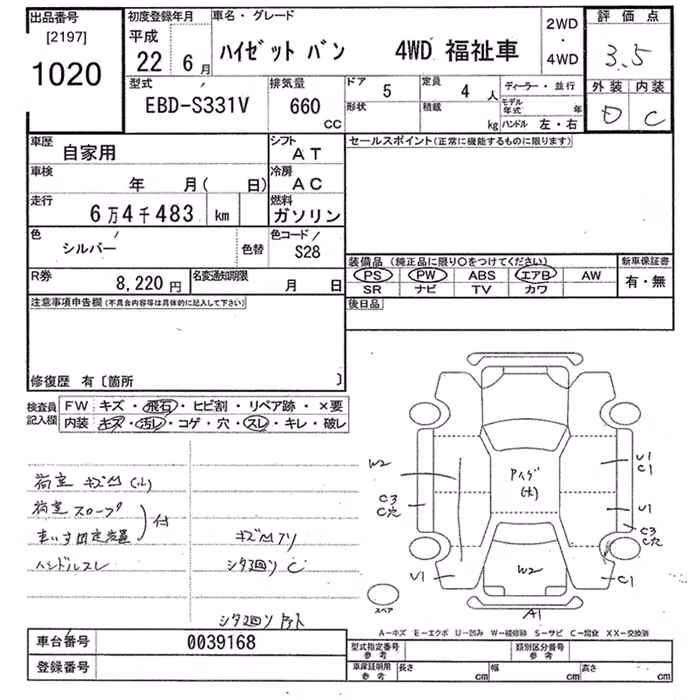 出品番号
[2197]
1020
初度登録年月
平成
22 6月
車名・グレード
ハイゼット バン 4WD 福祉車
2WD
・
4WD
評価点
3.5
外装 内装
D C
型式
EBD-S331V
排気量
660
CC
ドア
5
定員
4 人
形状
積載
kg
ディーラー・並行
モデル年式 年
ハンドル 左・右
車歴
自家用
シフト
AT
車検
年 月( 日)
冷房
AC
走行
6万4千483 km
燃料
ガソリン
色
シルバー
色替
色コード
S28
R券
8,220円
名変通知期限
月 日
セールスポイント(正常に機能するものに限ります)
装備品(純正品に限り○をつけてください)
PS PW ABS エアB AW
SR ナビ TV カワ
新車保証書
有・無
後日品
注意事項申告欄(不具合内容等は具体的に記入して下さい)
修復歴 有〔箇所 〕
検査員
記入欄
FW キズ・飛石・ヒビ割・リペア跡・×要
内装 キズ・汚レ・コゲ・穴・スレ・キレ・破レ
荷室 キズ凹(小)
荷室 スロープ
車いす固定装置
付
ハンドルスレ
キズ凹アリ
シタ回リ C
シタ回リ
W2
C3
C穴
U1
アイダ
(大)
W2
U1
C1
U1
C3
C穴
C1
A1
スペア
A−キズ E−エクボ U−凹み W−補修跡 S−サビ C−腐食 XX−交換済
車台番号
0039168
登録番号
型式指定番号
参考
類別区分番号
参考
車庫証明用
参考
長さ cm
幅 cm
高さ cm